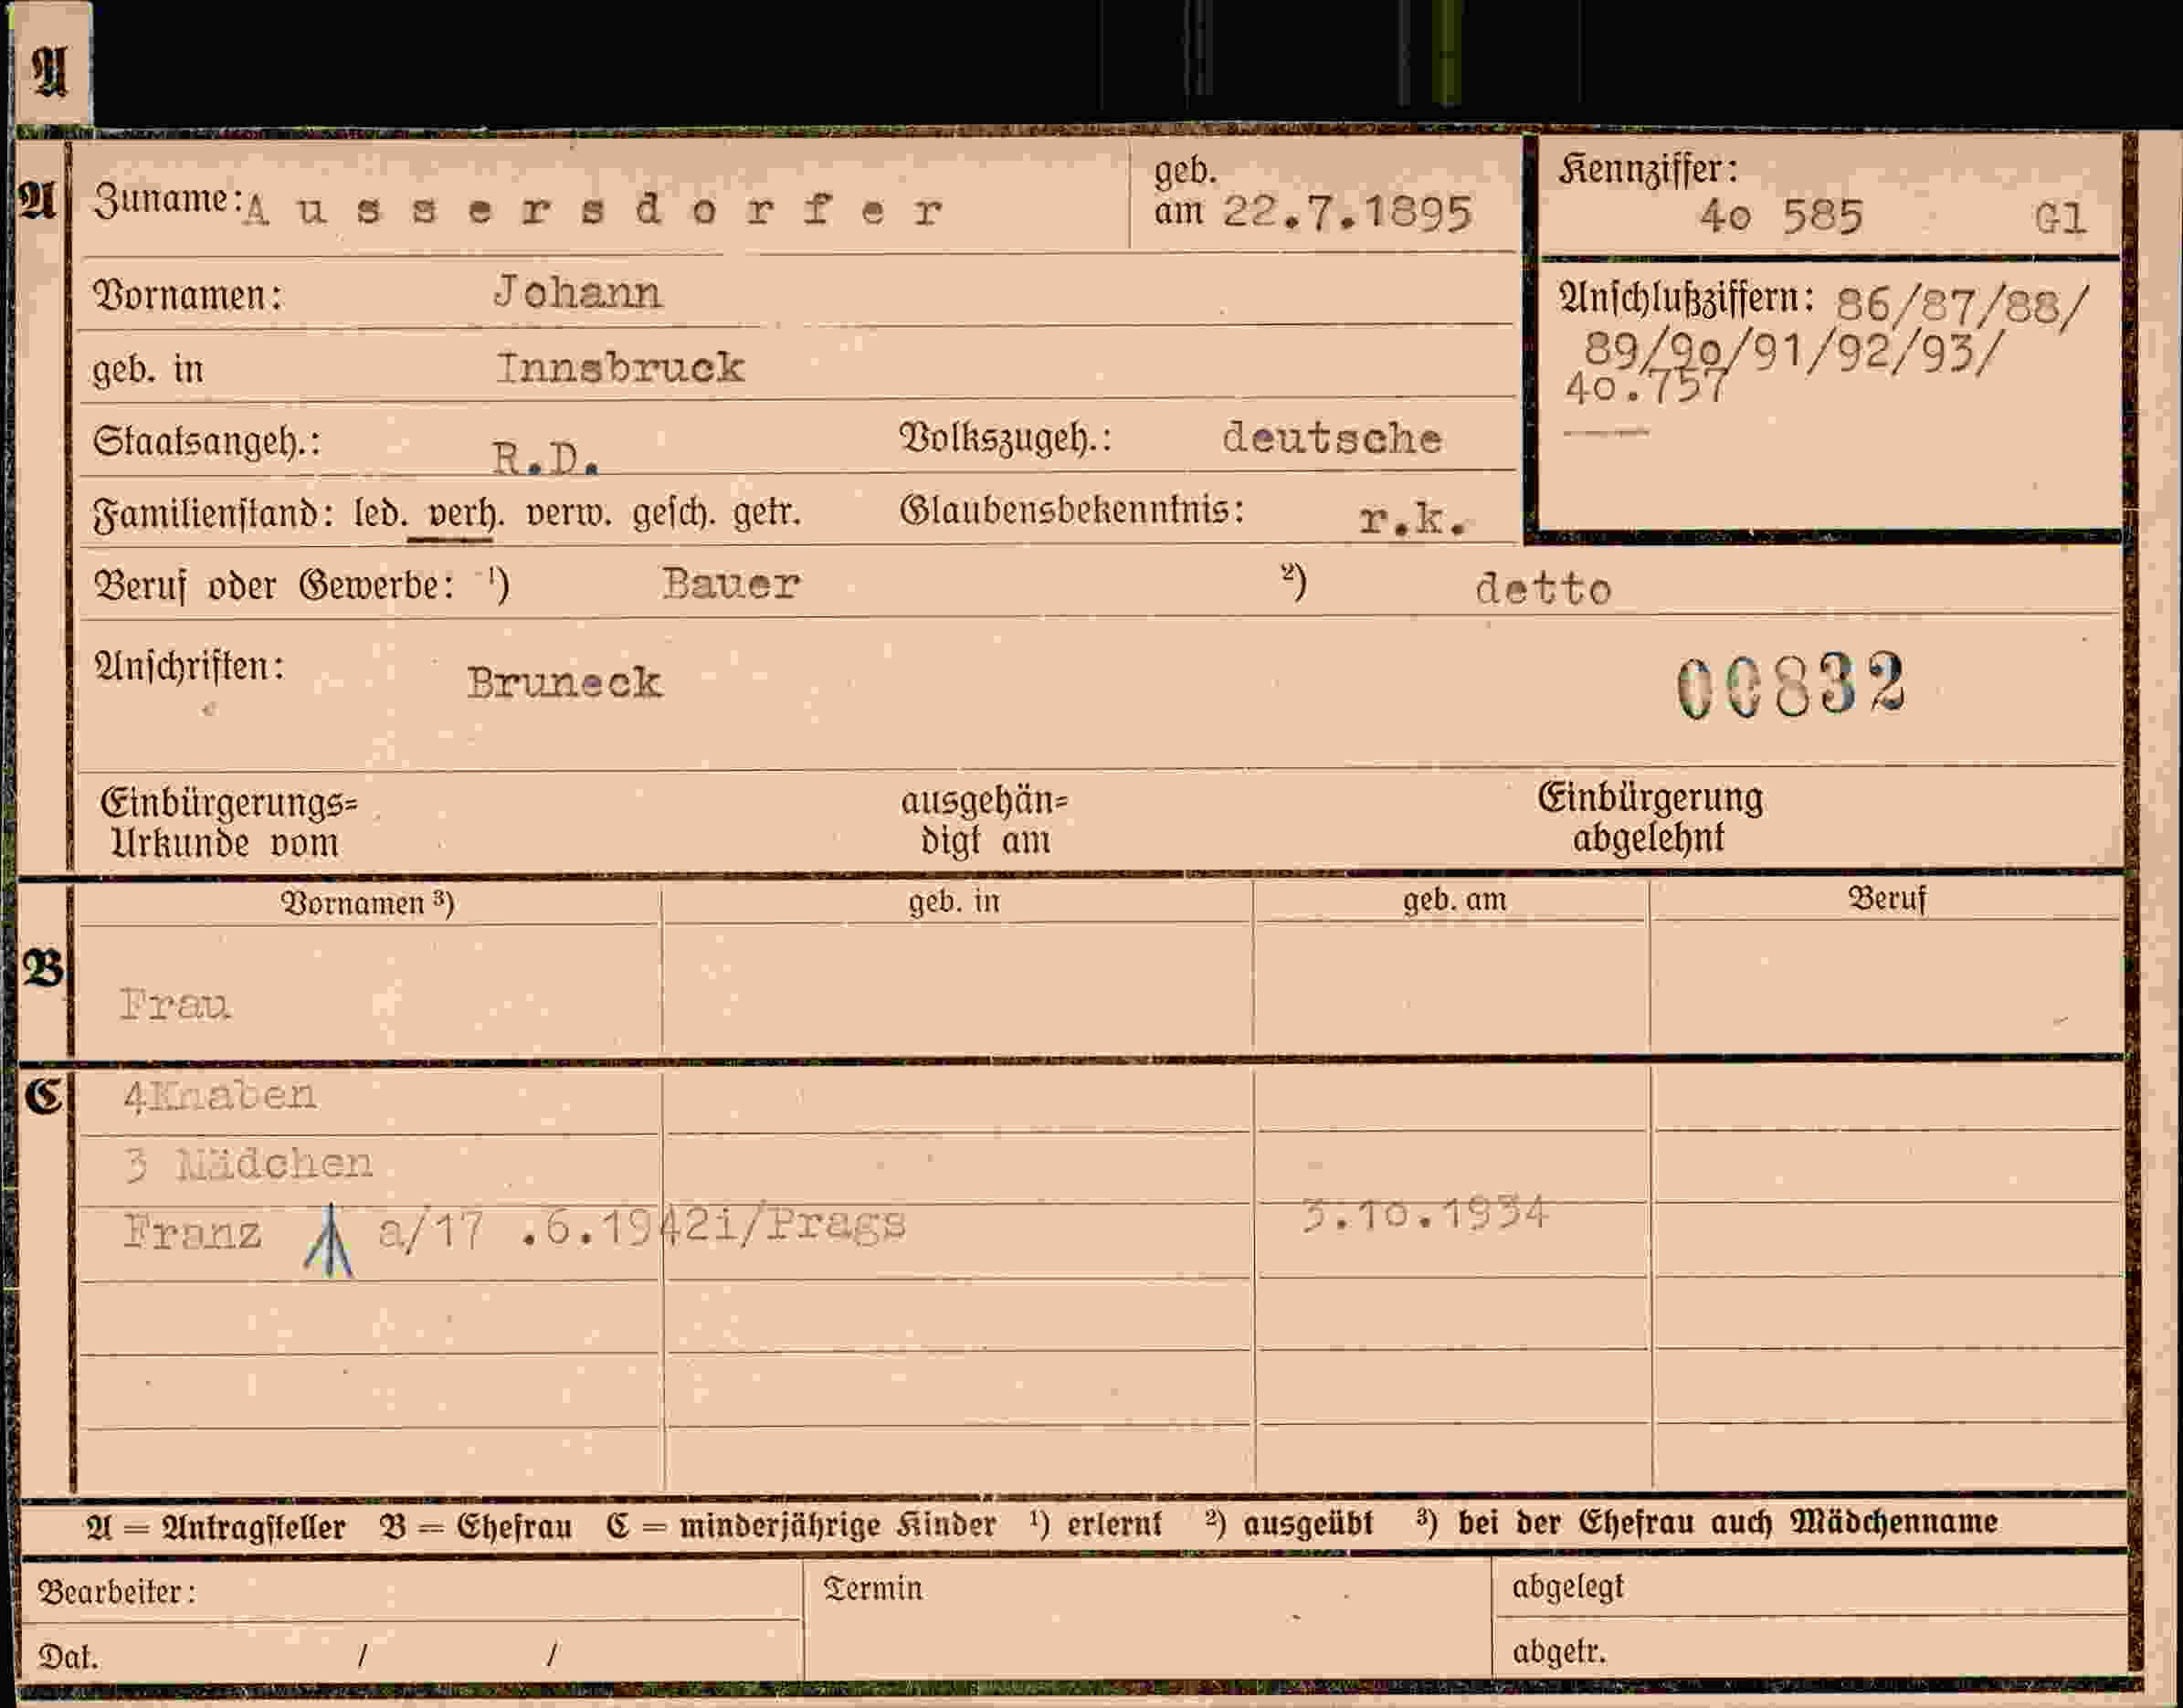 A
A Zuname: Aussersdorfer geb. am 22.7.1895 Kennziffer: 4o 585 Gl
Vornamen: Johann
Anschlußziffern: 86/87/88/
89/9o/91/92/93/
4o.757
geb. in Innsbruck
Staatsangeh.: R.D. Volkszugeh.: deutsche
Familienstand: led. verh. verw. gesch. getr. Glaubensbekenntnis: r.k.
Beruf oder Gewerbe: ¹) Bauer ²) detto
Anschriften: Bruneck 00832
Einbürgerungs= ausgehän= Einbürgerung
Urkunde vom digt am abgelehnt
Vornamen ³) geb. in geb. am Beruf
B
Frau
C 4Knaben
3 Mädchen
Franz a/17 .6.1942i/Prags 3.1o.1934
A = Antragsteller B = Ehefrau C = minderjährige Kinder ¹) erlernt ²) ausgeübt ³) bei der Ehefrau auch Mädchenname
Bearbeiter: Termin abgelegt
Dat. / / abgetr.